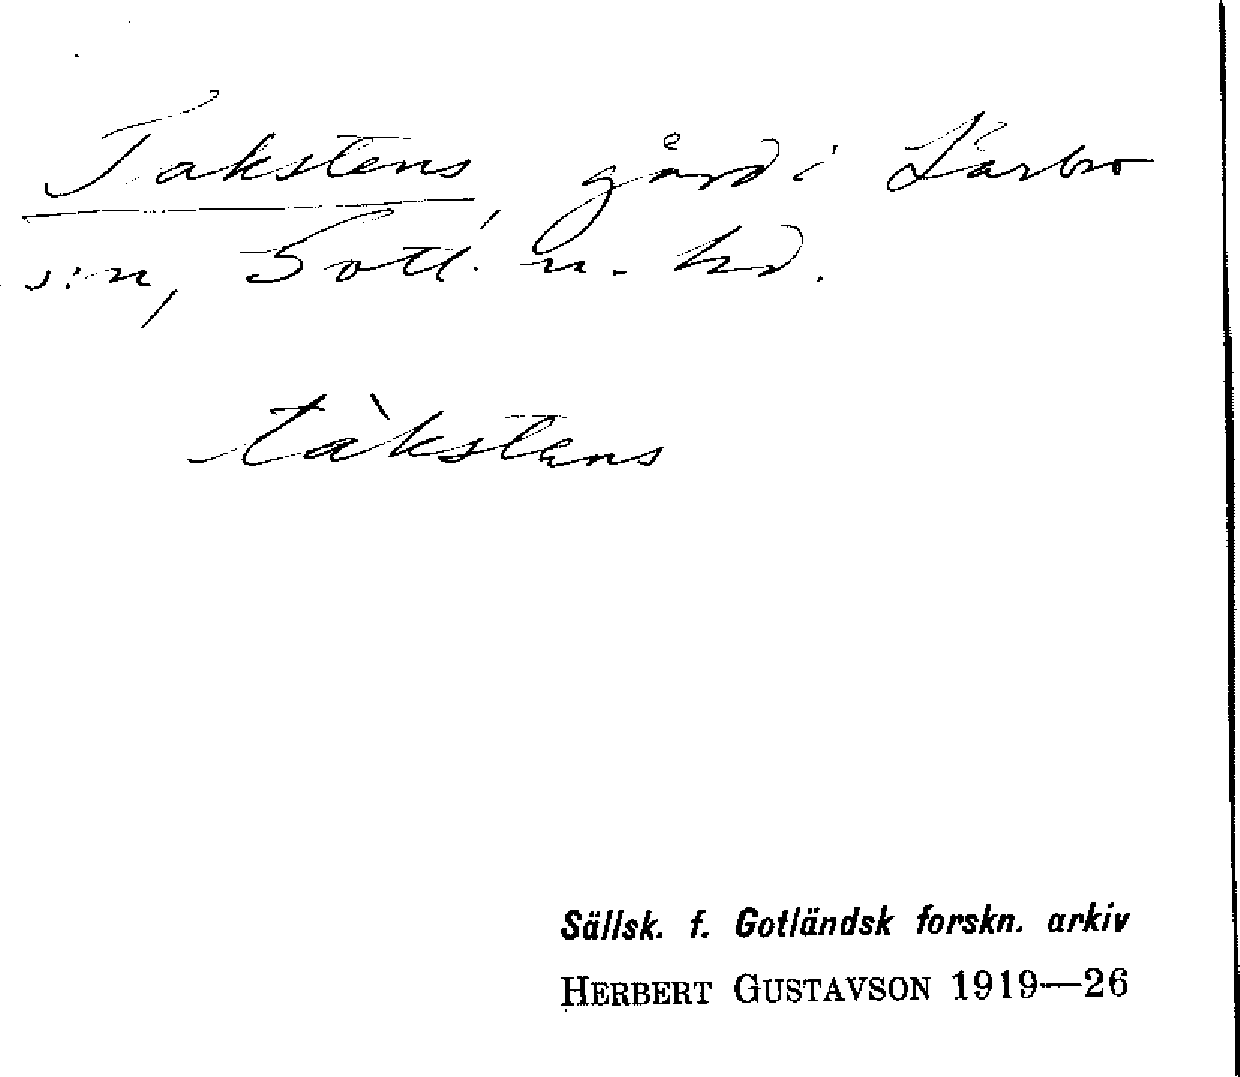 Takstens, gård i Lärbro
s:n, Gotl. n. hd.
tàkstens
Sällsk. f. Gotländsk forskn. arkiv
HERBERT GUSTAVSON 1919—26